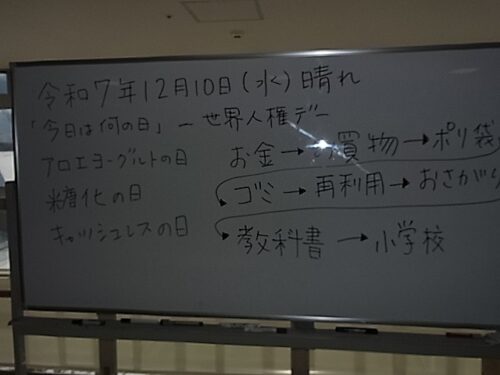 令和7年12月10日(水)晴れ
「今日は何の日」ー世界人権デー
アロエヨーグルトの日
糖化の日
キャッシュレスの日
お金→お買物→ポリ袋
ゴミ→再利用→おさがり
教科書→小学校